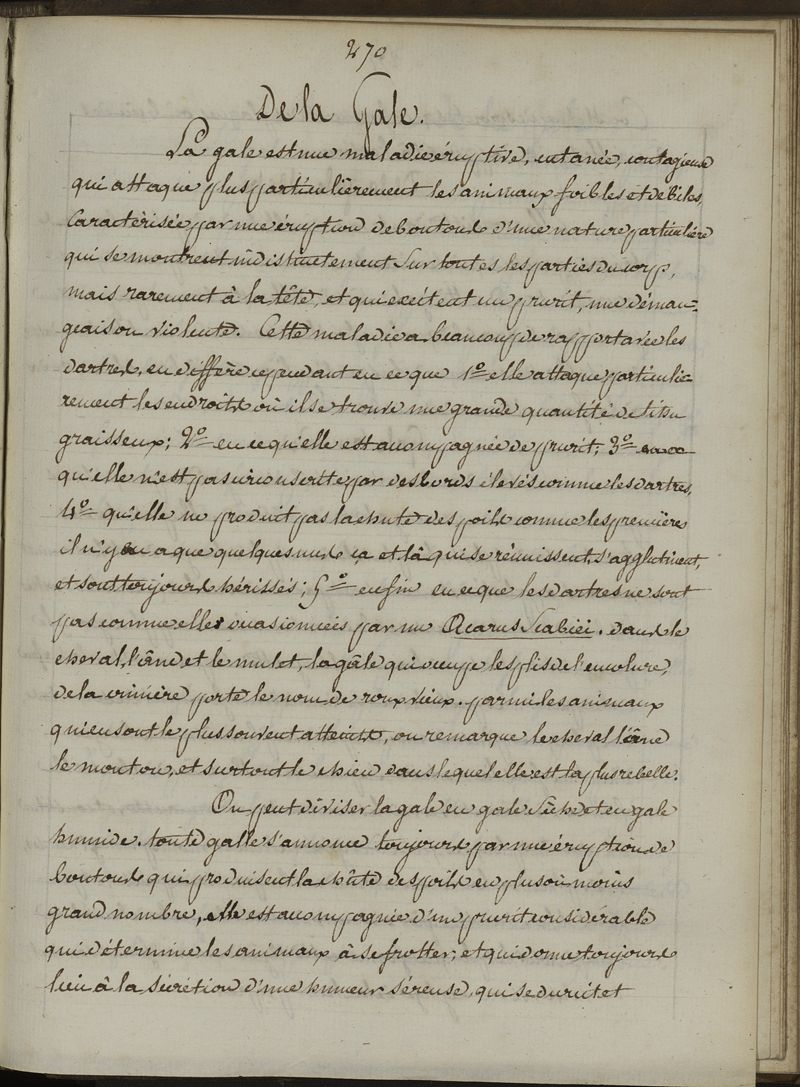 270
De la Gale.
La gale est une maladie éruptive, cutanée, contagieuse
qui attaque plus particulièrement les animaux foibles et débiles,
Caractèrisée par une éruption de boutons d'une nature particulière
qui se montrent indistinctement sur toutes les parties du corp,
mais rarement à la tête, et qui excitent un prurit, une déman-
geaison violente. Cette maladie a beaucoup de rapport avec les
dartres, en diffère cependant en ce que 1º elle attaque particuliè-
rement les endroits où il se trouve une grande quantité de tissu
graisseux; 2º en ce qu'elle est accompagnée de prurit; 3º en ce
qu'elle n'est pas circonscritte par des bords élevés comme les dartres,
4º qu'elle ne produit pas la chute des poils comme les première
il n'y en a que quelques uns ça et là qui se réunissent, s'agglutinent,
et sont toujours hérissés; 5º enfin en ce que les dartres ne sont
pas comme elles occasionnées par un Acarus Scabiei. dans le
cheval, l'âne et le mulet, la gâle qui occupe les plis de l'encolure,
de la crinière porte le nom de roux vieux. parmi les animaux
qui en sont le plus souvent atteints, on remarque le cheval l'âne
le mouton, et surtout le chien dans lequel elle est la plus rebelle.
On peut diviser la gale en gale sèche et en gale
humide. toute galle s'annonce toujours par une éruption de
boutons qui produisent la chûte des poils en plus ou moins
grand nombre, elle est accompagnée d'un prurit considérable
qui détermine les animaux à se frotter, et qui donne toujours
lieu à la sécrétion d'une humeur séreuse, qui se durcit et